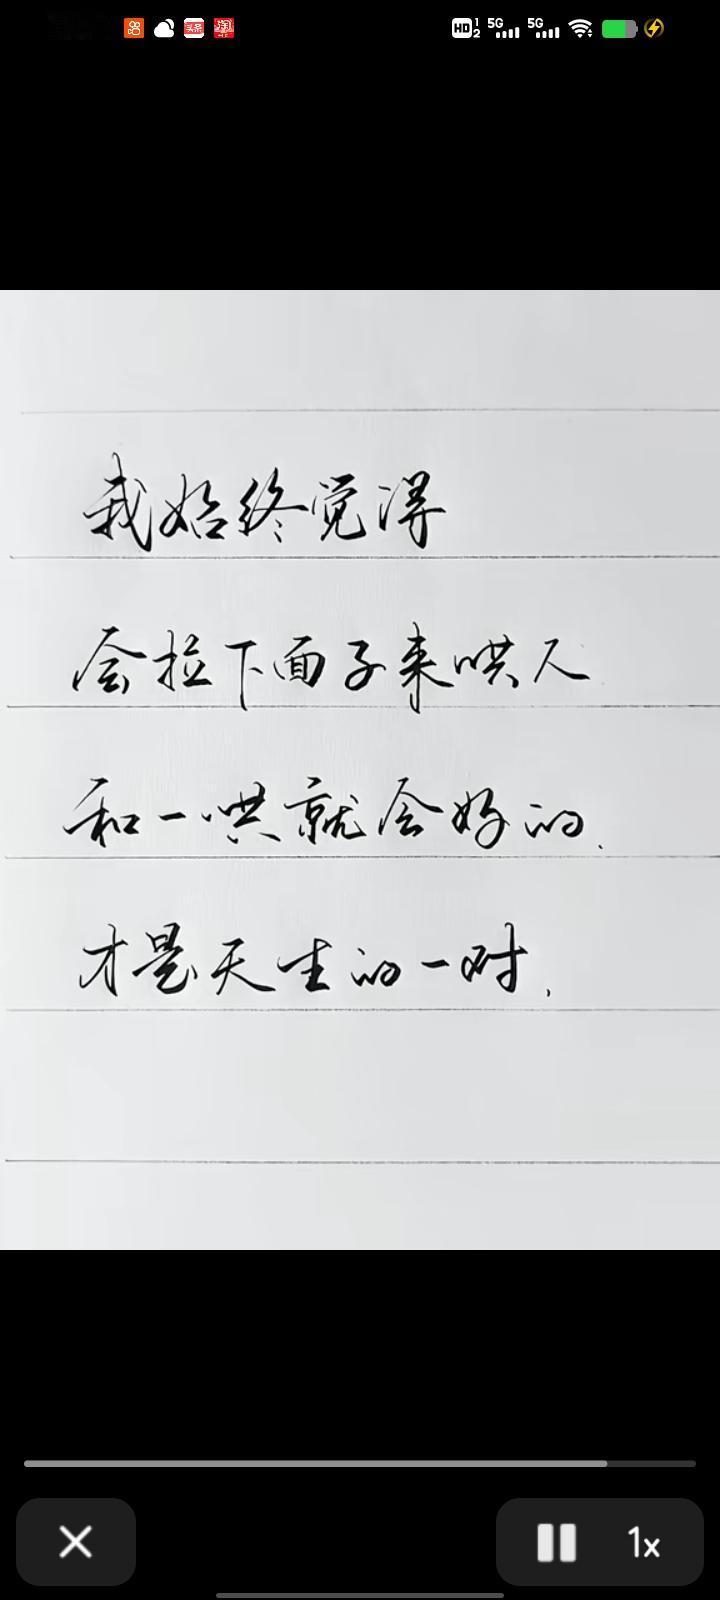 HD 1 2 5G 5G
我始终觉得
会拉下面子来哄人
和一哄就会好的.
才是天生的一对,
1x